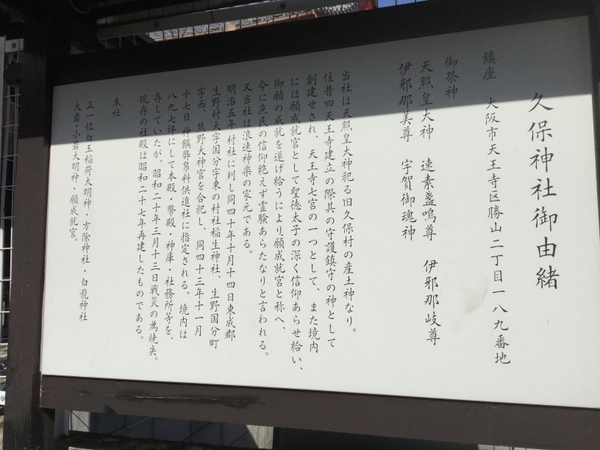 久保神社御由緒
鎮座　大阪市天王寺区勝山二丁目一八九番地
御祭神
天照皇大神　速素盞嗚尊　伊邪那岐尊
伊邪那美尊　宇賀御魂神
当社は天照皇大神祀る旧久保村の産土神なり。
往昔四天王寺建立の際其の守護鎮守の神として
創建せされ、天王寺七宮の一つとして、また境内
には願成就宮として聖徳太子の深く信仰あらせ給い、
御願の成就を遂げ給うにより願成就宮と称へ、
今に庶民の信仰絶えず霊験あらたなりと言われる。
又当社は浪速神楽の家元である。
明治五年村社に列し同四十年十月十四日東成郡
生野村大字国分字東の村社稲生神社、生野国分町
字西、熊野大神宮を合祀し、同四十三年十一月
十七日神饌幣帛料供進社に指定される。境内は
八九七坪にして本殿・幣殿・神庫・社務所等を、
存していたが、昭和二十年三月十三日戦災の為焼失。
現存の社殿は昭和二十七年再建したものである。
末社
正一位白玉稲荷大明神・方除神社・白龍神社
大岩・小岩大明神・願成就宮。